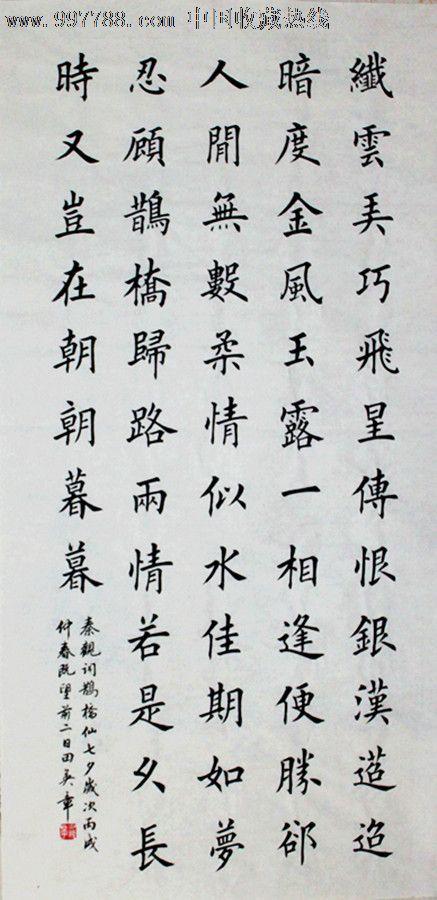 www.997788.com 中国收藏热线
纖雲弄巧飛星傳恨銀漢迢迢
暗度金風玉露一相逢便勝卻
人閒無數柔情似水佳期如夢
忍顧鵲橋歸路兩情若是久長
時又豈在朝朝暮暮
秦觀词鵲橋仙七夕歲次丙戌
仲春既望前二日田英章